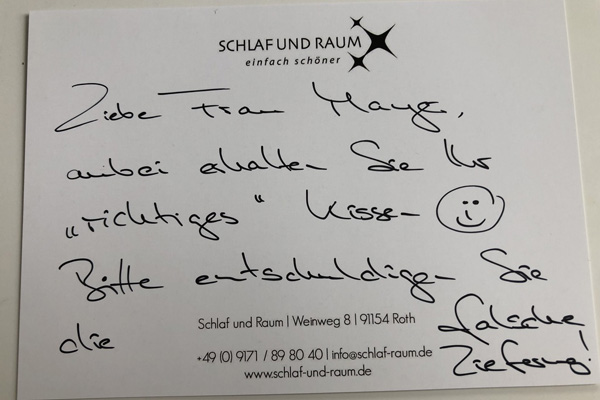 SCHLAF UND RAUM
einfach schöner
Liebe Frau
anbei erhalten Sie Ihr
„richtiges“ Kissen
Bitte entschuldigen Sie
die falsche
Lieferung!
Schlaf und Raum | Weinweg 8 | 91154 Roth
+49 (0) 9171 / 89 80 40 | info@schlaf-raum.de
www.schlaf-und-raum.de